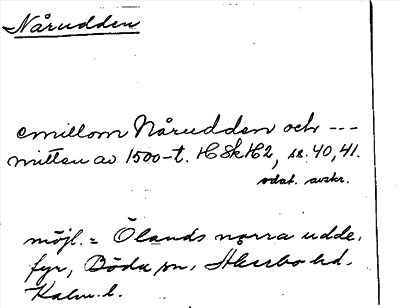 Nårudden
emillom Nårudden och ---
mitten av 1500-t. HSkH2, sr. 40, 41.
odat. avskr.
möjl. = Ölands norra udde,
fyr, Böda sn, Åkerbo hd,
Kalm. l.